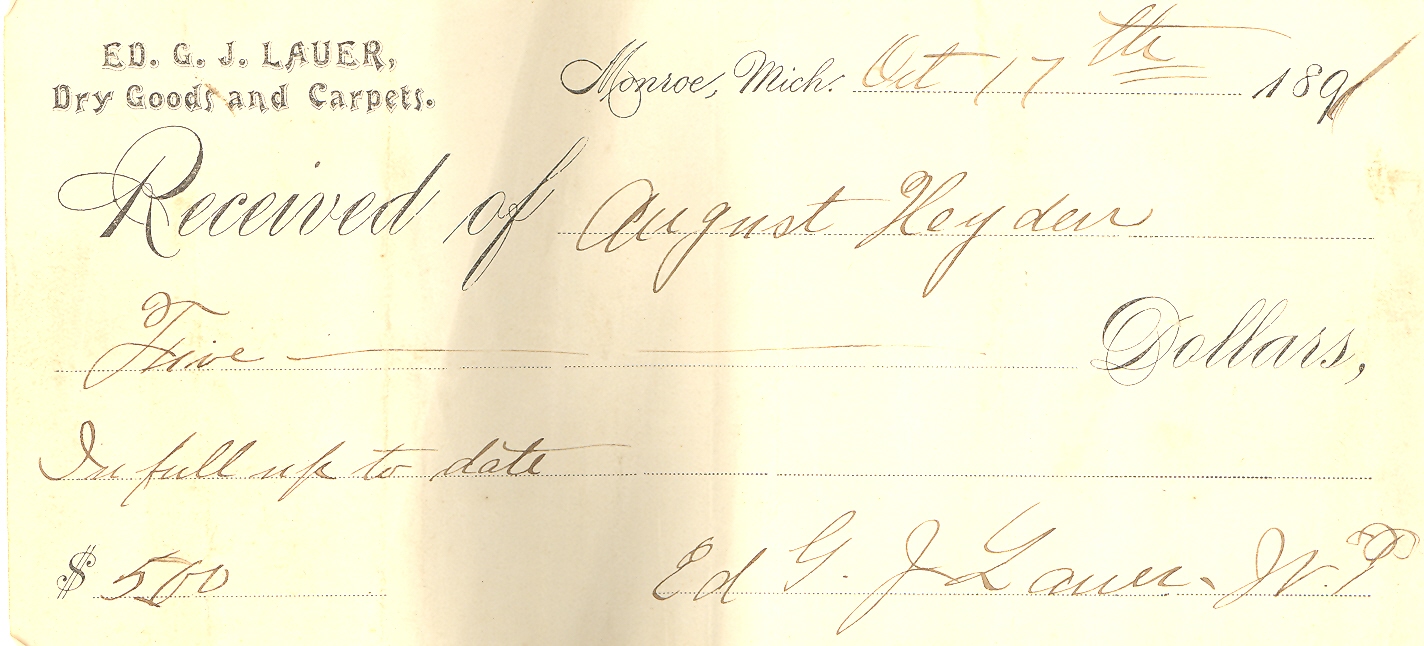 ED. G. J. LAUER,
Dry Goods and Carpets.
Monroe, Mich. Oct 17th 1891
Received of August Heyden
Five Dollars,
In full up to date
$ 5 00
Ed G. J. Lauer. W. P